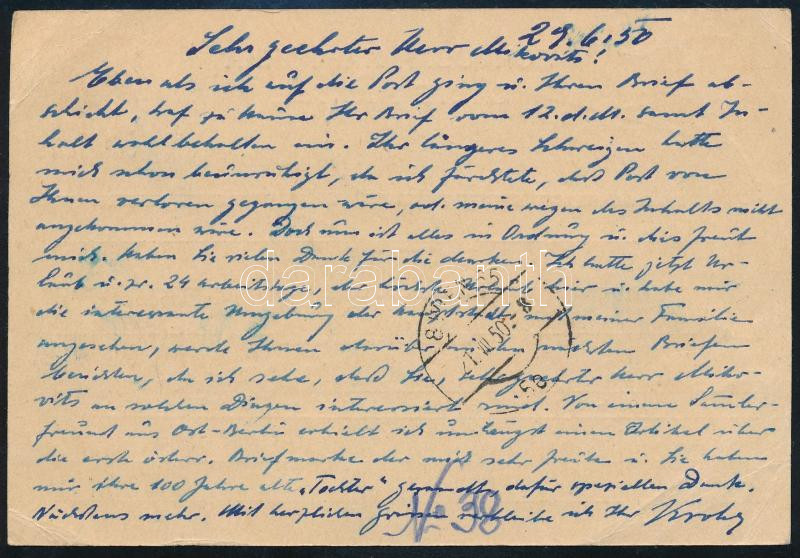 28.6.50
Sehr geehrter Herr Mikovits!
Eben als ich auf die Post ging u. Ihren Brief ab-
schickt, traf zu Hause Ihr Brief vom 12.d.M. samt In-
halt wohlbehalten ein. Ihr längeres Schweigen hatte
mich schon beunruhigt, da ich fürchtete, dass Post von
Ihnen verloren gegangen wäre, od. meine wegen des Inhalts nicht
angekommen wäre. Doch nun ist alles in Ordnung u. das freut
mich. Haben Sie vielen Dank für die Marken. Ich hatte jetzt Ur-
laub u. zw. 24 Arbeitstage, hier u. habe mir
die interessante Umgebung der mit meiner Familie
angesehen, werde Ihnen darüber im nächsten Briefen
berichten, da ich sehe, dass Sie, sehr geehrter Herr Miko-
vits an solchen Dingen interessiert sind. Von einem Samler-
freund aus Ost-Berlin erhielt ich unlängst einen Artikel über
die erste österr. Briefmarke der mich sehr freute u. Sie haben
mir ihre 100 Jahre alte "Tochter" gesandt, dafür speziellen Dank.
Nächstens mehr. Mit herzlichen Grüssen verbleibe ich Ihr
No 38
darabanth